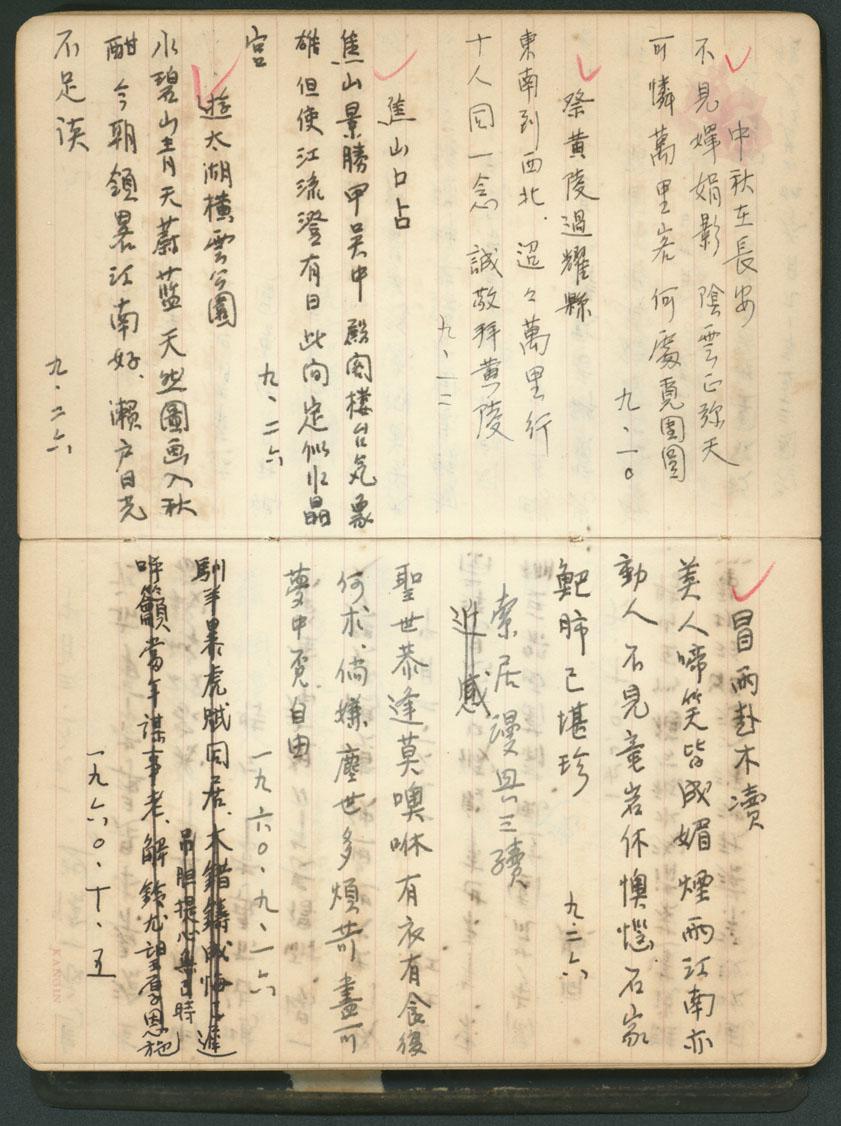 中秋在長安
不見嬋娟影 陰雲正弥天
可憐萬里客 何處覓團圓
九·一〇
祭黃陵過耀縣
東南到西北、迢々萬里行
十人同一念 誠敬拜黃陵
九·一二
焦山口占
焦山景勝甲吴中 殿閣樓台気象
雄 但使江流澄有日 此間定似水晶
宮
九·二六
遊太湖橫雲公園
水碧山青天蔚藍 天然圖画入秋
酣 今朝領畧江南好、瀨户日光
不足談
九·二六
冒雨赴木瀆
美人啼笑皆成媚 煙雨江南亦
動人 不見竜岩休懊惱 石家
鲃肺已堪珍
九·二六
索居漫興三續
近感
聖世恭逢莫噢咻 有衣有食復
何求、倘嫌塵世多煩苛 盡可
夢中覓自由
一九六〇·九·一六
馴羊暴虎賦同居、大錯鑄成悔已遲
吊胆提心無已時
呼籲當年謀事老、解鈴尤望厚恩施
一九六〇·十·五
KANGIN